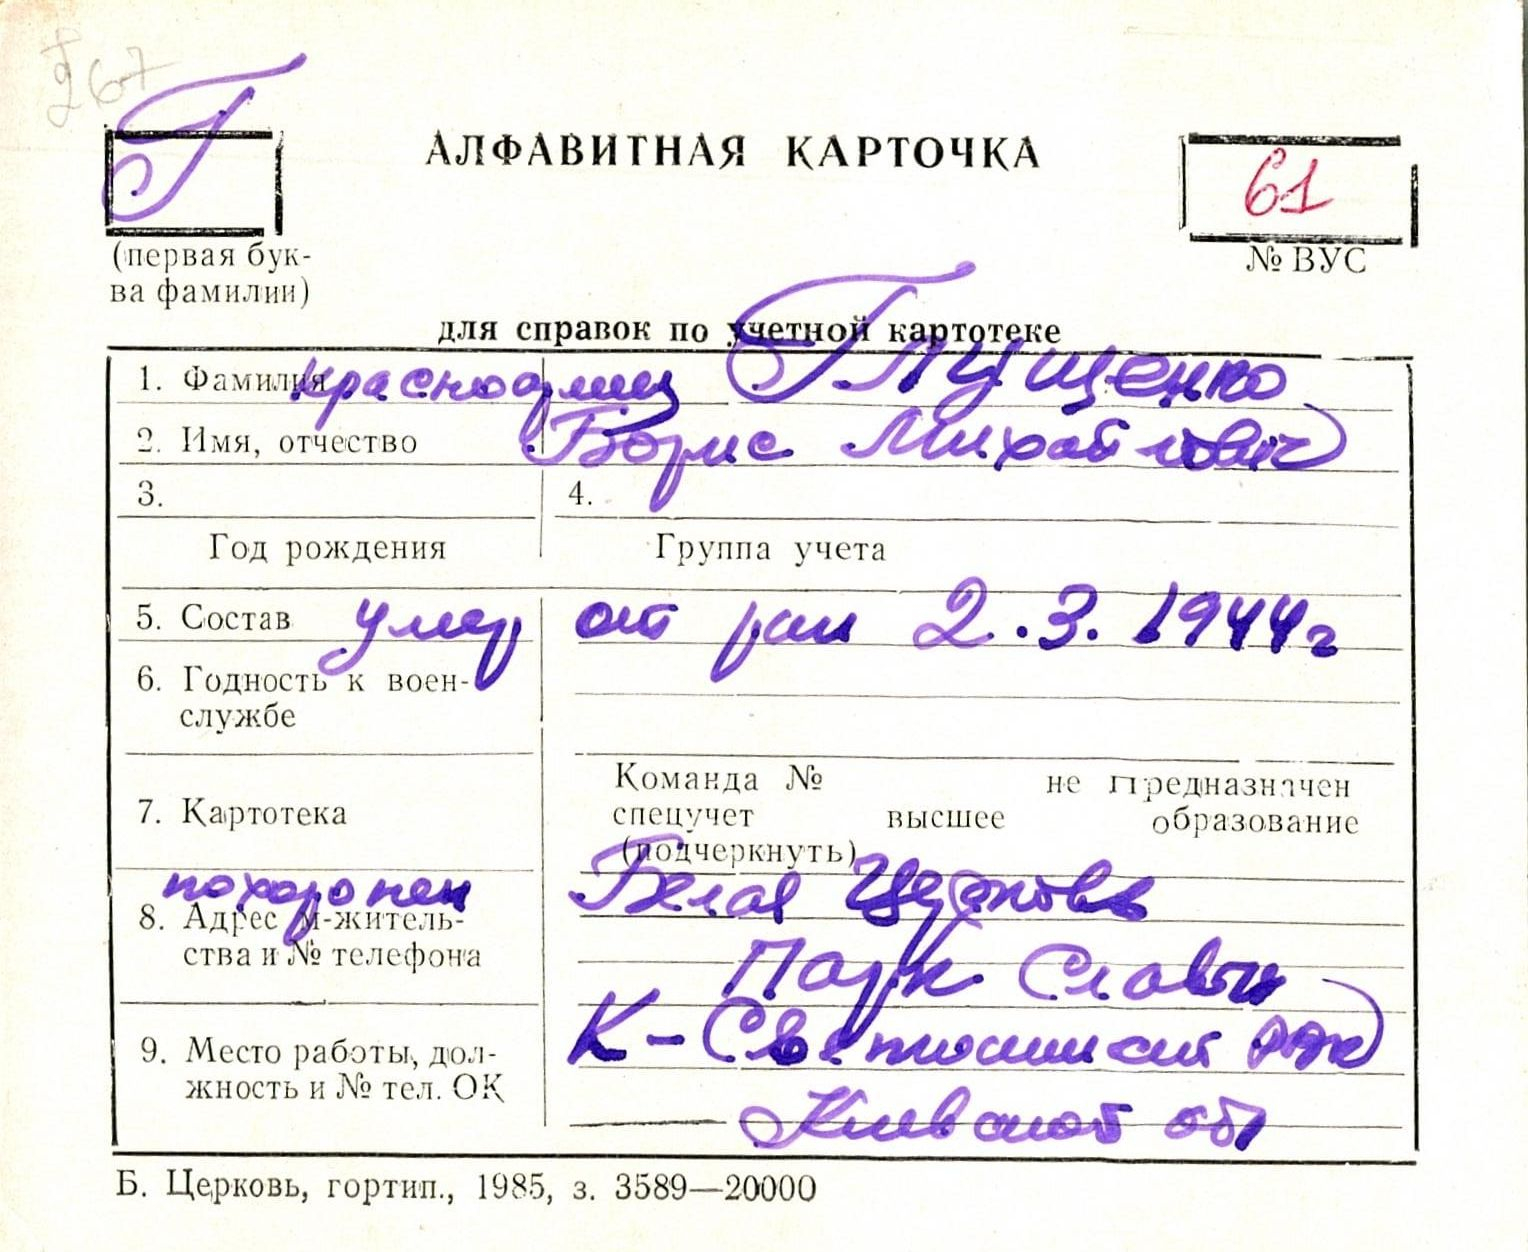 267
Г
АЛФАВИТНАЯ КАРТОЧКА
61
(первая бук-
ва фамилии)
№ ВУС
для справок по учетной картотеке
1. Фамилия красноармеец Глущенко
2. Имя, отчество Борис Михайлович
3. 4.
Год рождения Группа учета
5. Состав умер от ран 2.3.1944г
6. Годность к воен-
службе
Команда № не предназначен
7. Картотека
спецучет высшее образование
(подчеркнуть)
похоронен Белая Церковь
8. Адрес м-житель-
ства и № телефона
Парк Славы
К-Святошинский рвк
9. Место работы, дол-
жность и № тел. ОК
Киевской обл
Б. Церковь, гортип., 1985, з. 3589—20000